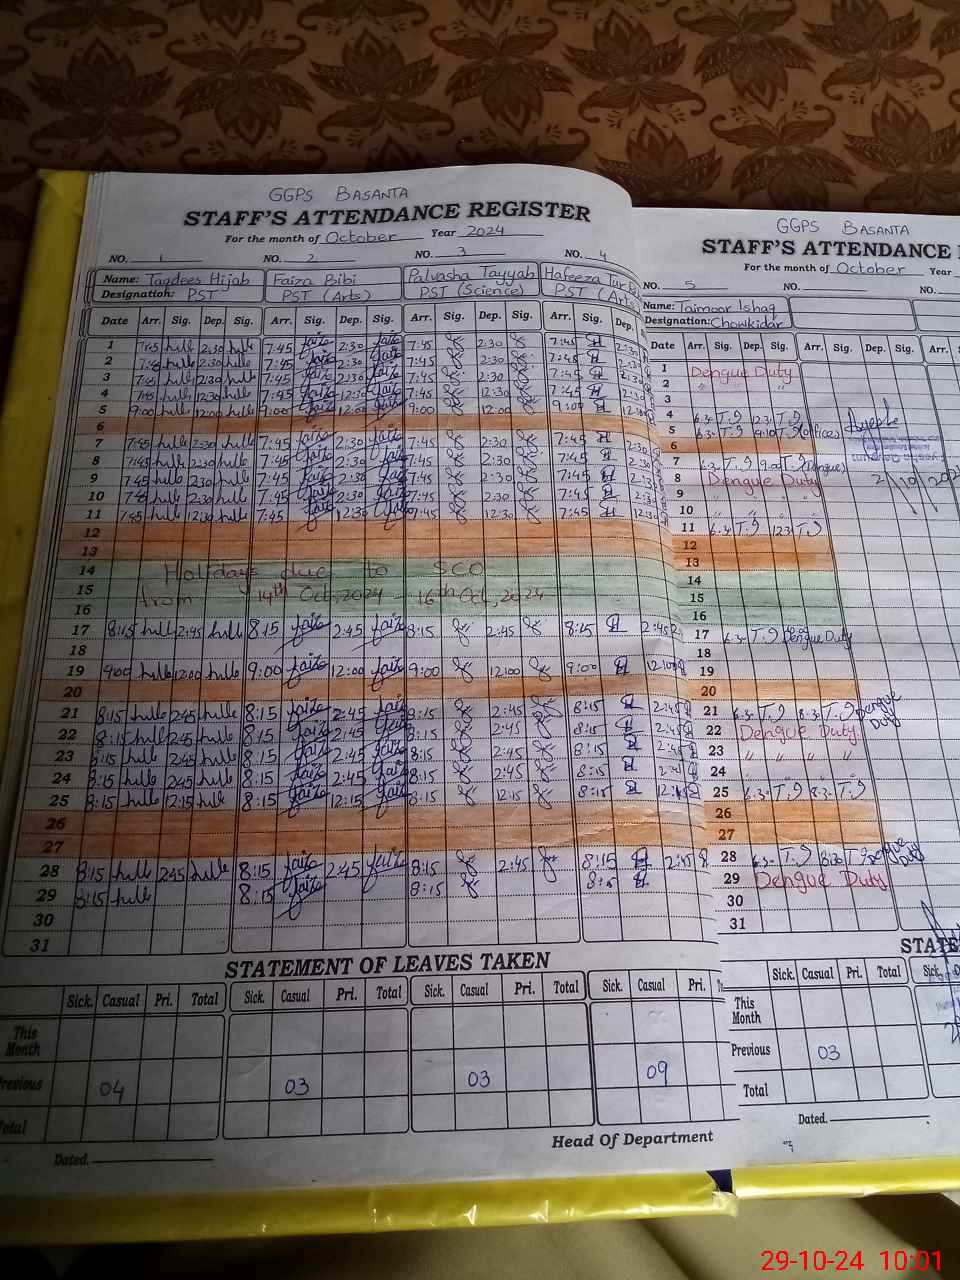 GGPS BASANTA
STAFF'S ATTENDANCE REGISTER
For the month of October Year 2024
NO. 1 NO. 2 NO. 3 NO. 4
Name: Taqdees Hijab Faiza Bibi Palvasha Tayyab Hafeeza
Designation: PST PST (Arts) PST (Science) PST (Arts
Date Arr. Sig. Dep. Sig. Arr. Sig. Dep. Sig. Arr. Sig. Dep. Sig. Arr. Sig. Dep.
1 7:45 2:30 7:45 faiza 2:30 faiza 7:45 2:30 7:45 2:30
2 7:45 2:30 7:45 faiza 2:30 faiza 7:45 2:30 7:45 2:30
3 7:45 2:30 7:45 faiza 2:30 faiza 7:45 2:30 7:45 2:30
4 7:45 12:30 7:45 faiza 12:30 faiza 7:45 12:30 7:45 12:30
5 9:00 12:00 9:00 faiza 12:00 faiza 9:00 12:00 9:00 12:00
6
7 7:45 2:30 7:45 faiza 2:30 faiza 7:45 2:30 7:45 2:30
8 7:45 2:30 7:45 faiza 2:30 faiza 7:45 2:30 7:45 2:30
9 7:45 2:30 7:45 faiza 2:30 faiza 7:45 2:30 7:45 2:30
10 7:45 2:30 7:45 faiza 2:30 faiza 7:45 2:30 7:45 2:30
11 7:45 12:30 7:45 faiza 12:30 faiza 7:45 12:30 7:45 12:30
12
13
14 Holidays due to SCO
15 from 14th Oct, 2024 - 16th Oct, 2024
16
17 8:15 2:45 8:15 faiza 2:45 faiza 8:15 2:45 8:15 2:45
18
19 9:00 12:00 9:00 faiza 12:00 faiza 9:00 12:00 9:00 12:00
20
21 8:15 2:45 8:15 faiza 2:45 faiza 8:15 2:45 8:15 2:45
22 8:15 2:45 8:15 faiza 2:45 faiza 8:15 2:45 8:15 2:45
23 8:15 2:45 8:15 faiza 2:45 faiza 8:15 2:45 8:15 2:45
24 8:15 2:45 8:15 faiza 2:45 faiza 8:15 2:45 8:15 2:45
25 8:15 12:15 8:15 faiza 12:15 faiza 8:15 12:15 8:15 12:15
26
27
28 8:15 2:45 8:15 faiza 2:45 faiza 8:15 2:45 8:15 2:45
29 8:15 8:15 faiza 8:15 8:15
30
31
STATEMENT OF LEAVES TAKEN
Sick. Casual Pri. Total Sick. Casual Pri. Total Sick. Casual Pri. Total Sick. Casual Pri.
This Month
Previous 04 03 03 09
Total
Head Of Department
Dated.
GGPS BASANTA
STAFF'S ATTENDANCE
For the month of October Year
NO. 5 NO. NO.
Name: Taimoor Ishaq
Designation: Chowkidar
Date Arr. Sig. Dep. Sig. Arr. Sig. Dep. Sig. Arr.
1 Dengue Duty
2 " " "
3
4 6:30 T.I 12:30 T.I
5 6:30 T.I 9:10 T.I (office)
6
7 6:30 T.I 9:00 T.I (Dengue)
8 Dengue Duty
9 " " "
10 " " "
11 6:30 T.I 12:30 T.I
12
13
14
15
16
17 6:30 T.I Dengue Duty
18
19
20
21 6:30 T.I 8:30 T.I Dengue Duty
22 Dengue Duty
23 " " " "
24 " " " "
25 6:30 T.I 8:30 T.I
26
27
28 6:30 T.I 8:30 T.I Dengue Duty
29 Dengue Duty
30
31
STATE
Sick. Casual Pri. Total Sick.
This Month
Previous 03
Total
Dated.
29-10-24 10:01